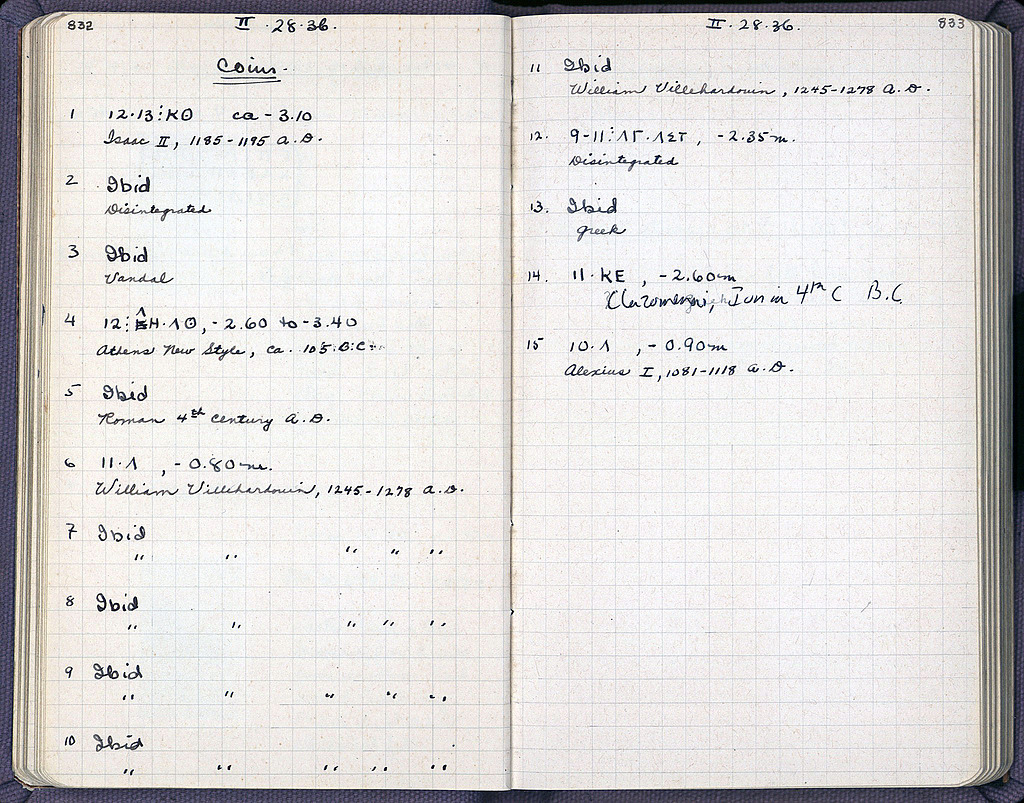 832
II · 28 · 36.
Coins.
1 12·13:ΚΘ ca - 3.10
Isaac II, 1185-1195 A.D.
2 Ibid
Disintegrated
3 Ibid
Vandal
4 12: Λ Η·ΛΘ, - 2.60 to - 3.40
Athens New Style, ca. 105 B.C.
5 Ibid
Roman 4th century A.D.
6 11·Λ , - 0.80 m.
William Villehardouin, 1245-1278 A.D.
7 Ibid
" " " " "
8 Ibid
" " " " "
9 Ibid
" " " " "
10 Ibid
" " " " "
II · 28 · 36.
833
11 Ibid
William Villehardouin, 1245-1278 A.D.
12. 9-11:ΛΓ·ΛΣΤ, - 2.35 m.
Disintegrated
13. Ibid
Greek
14. 11·ΚΕ , - 2.60 m
Clazomenai, in 4th C B.C.
15 10·Λ , - 0.90 m
Alexius I, 1081-1118 A.D.